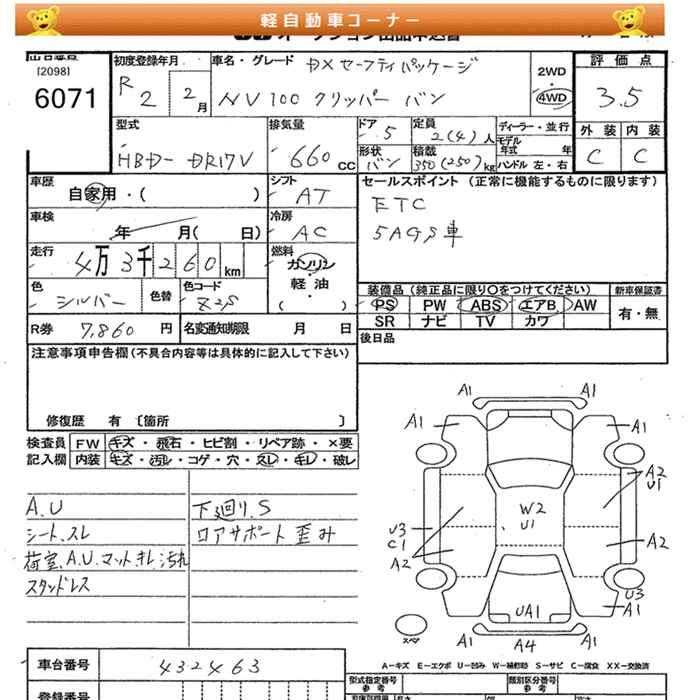 軽自動車コーナー
[2098]
6071
初度登録年月
R 2 2月
車名・グレード
DXセーフティパッケージ
NV100 クリッパー バン
2WD
・
4WD
評価点
3.5
外装 内装
C C
型式
HBD- DR17V
排気量
660 CC
ドア 5
形状 バン
定員 2(4)人
積載 350(250)kg
ディーラー・並行
モデル年式 年
ハンドル 左・右
車歴
自家用・( )
シフト
AT
車検
年 月( 日)
冷房
AC
走行
4万3千260km
燃料
ガソリン
軽油
・
( )
色
シルバー
色替
色コード
Z2S
R券 7,860 円
名変通知期限 月 日
セールスポイント (正常に機能するものに限ります)
ETC
5AGS車
装備品 (純正品に限り○をつけてください)
PS PW ABS エアB AW
SR ナビ TV カワ
新車保証書
有・無
後日品
注意事項申告欄(不具合内容等は具体的に記入して下さい)
修復歴 有 〔箇所 〕
検査員記入欄
FW キズ・飛石・ヒビ割・リペア跡・×要
内装 キズ・汚レ・コゲ・穴・スレ・キレ・破レ
A.U
シート.スレ
荷室.A.U.マットキレ.汚れ
スタッドレス
下廻り.S
ロアサポート歪み
A1 A1
A1 A1
A2
U1
W2
U1
U3
C1
A2
A2
UA1
U3
A1
スペア
A1 A4 A1
A－キズ E－エクボ U－凹み W－補修跡 S－サビ C－腐食 XX－交換済
車台番号 432463
登録番号
型式指定番号
参考
類別区分番号
参考